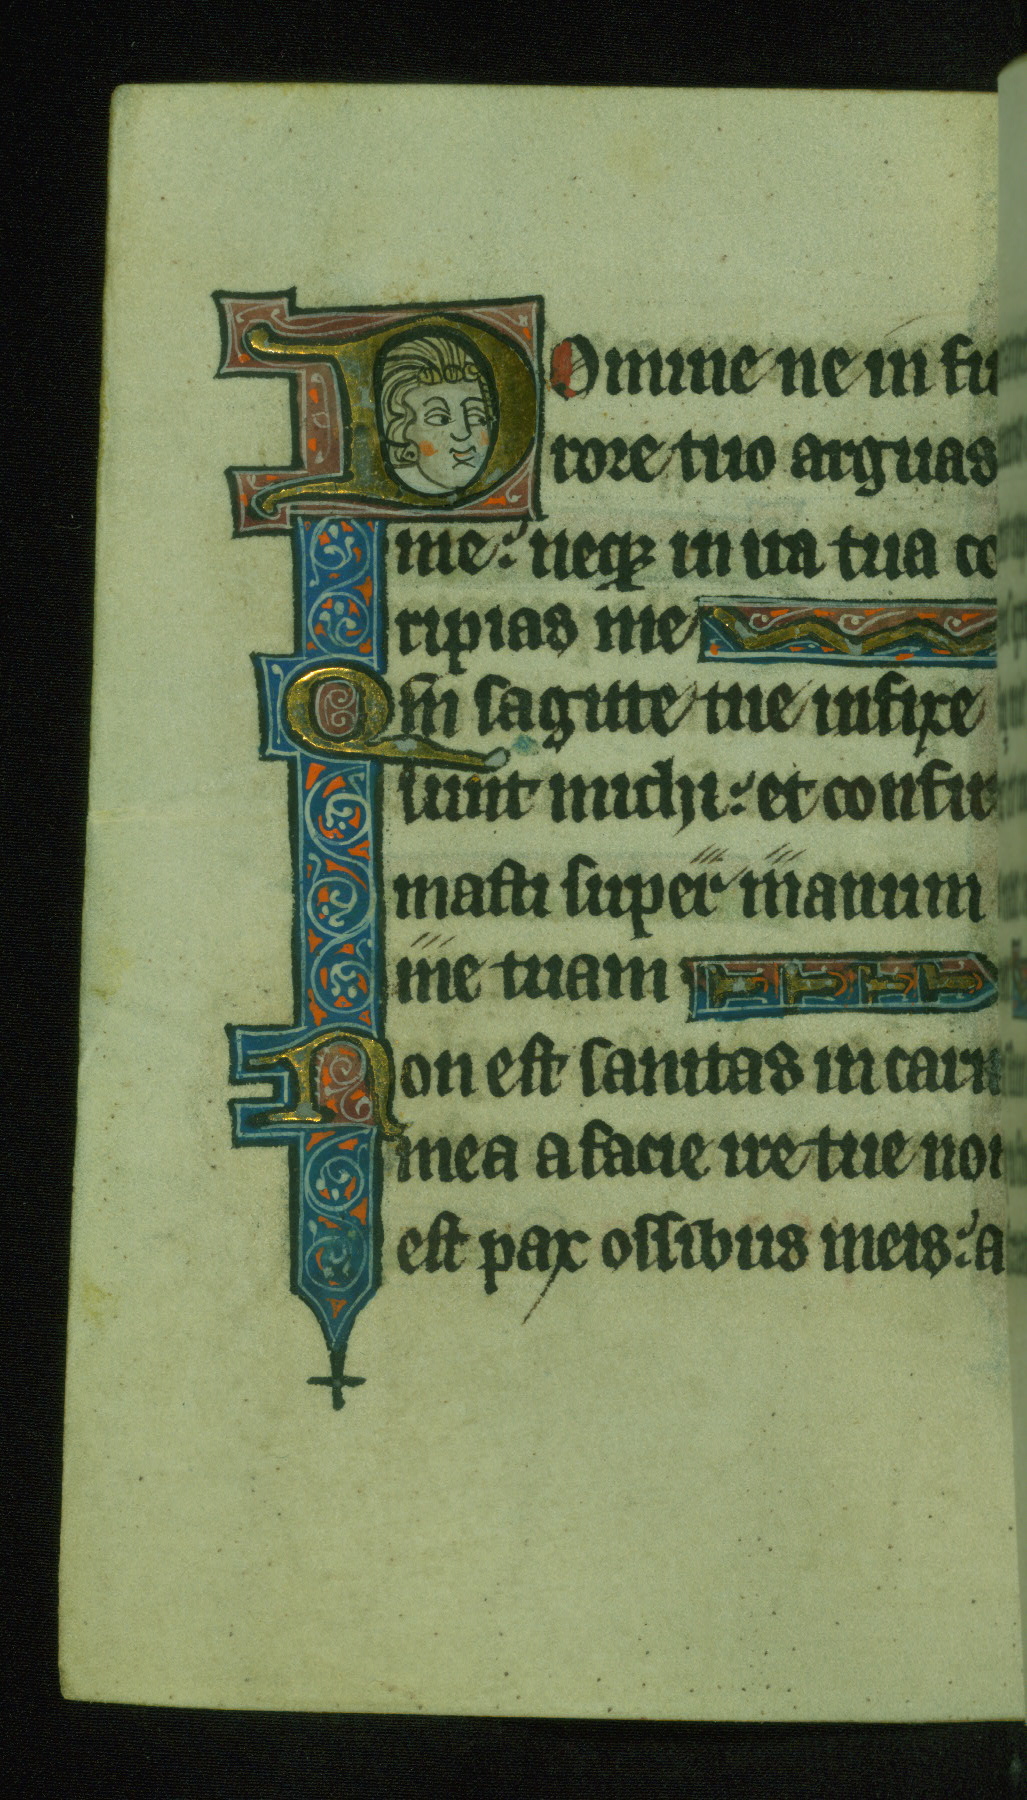 Domine ne in fu
rore tuo arguas
me: neq; in ira tua co
ripias me
Qm sagitte tue infixe
sunt michi: et confir
masti super manum
me tuam
Non est sanitas in carn
mea a facie ire tue non
est pax ossibus meis: a